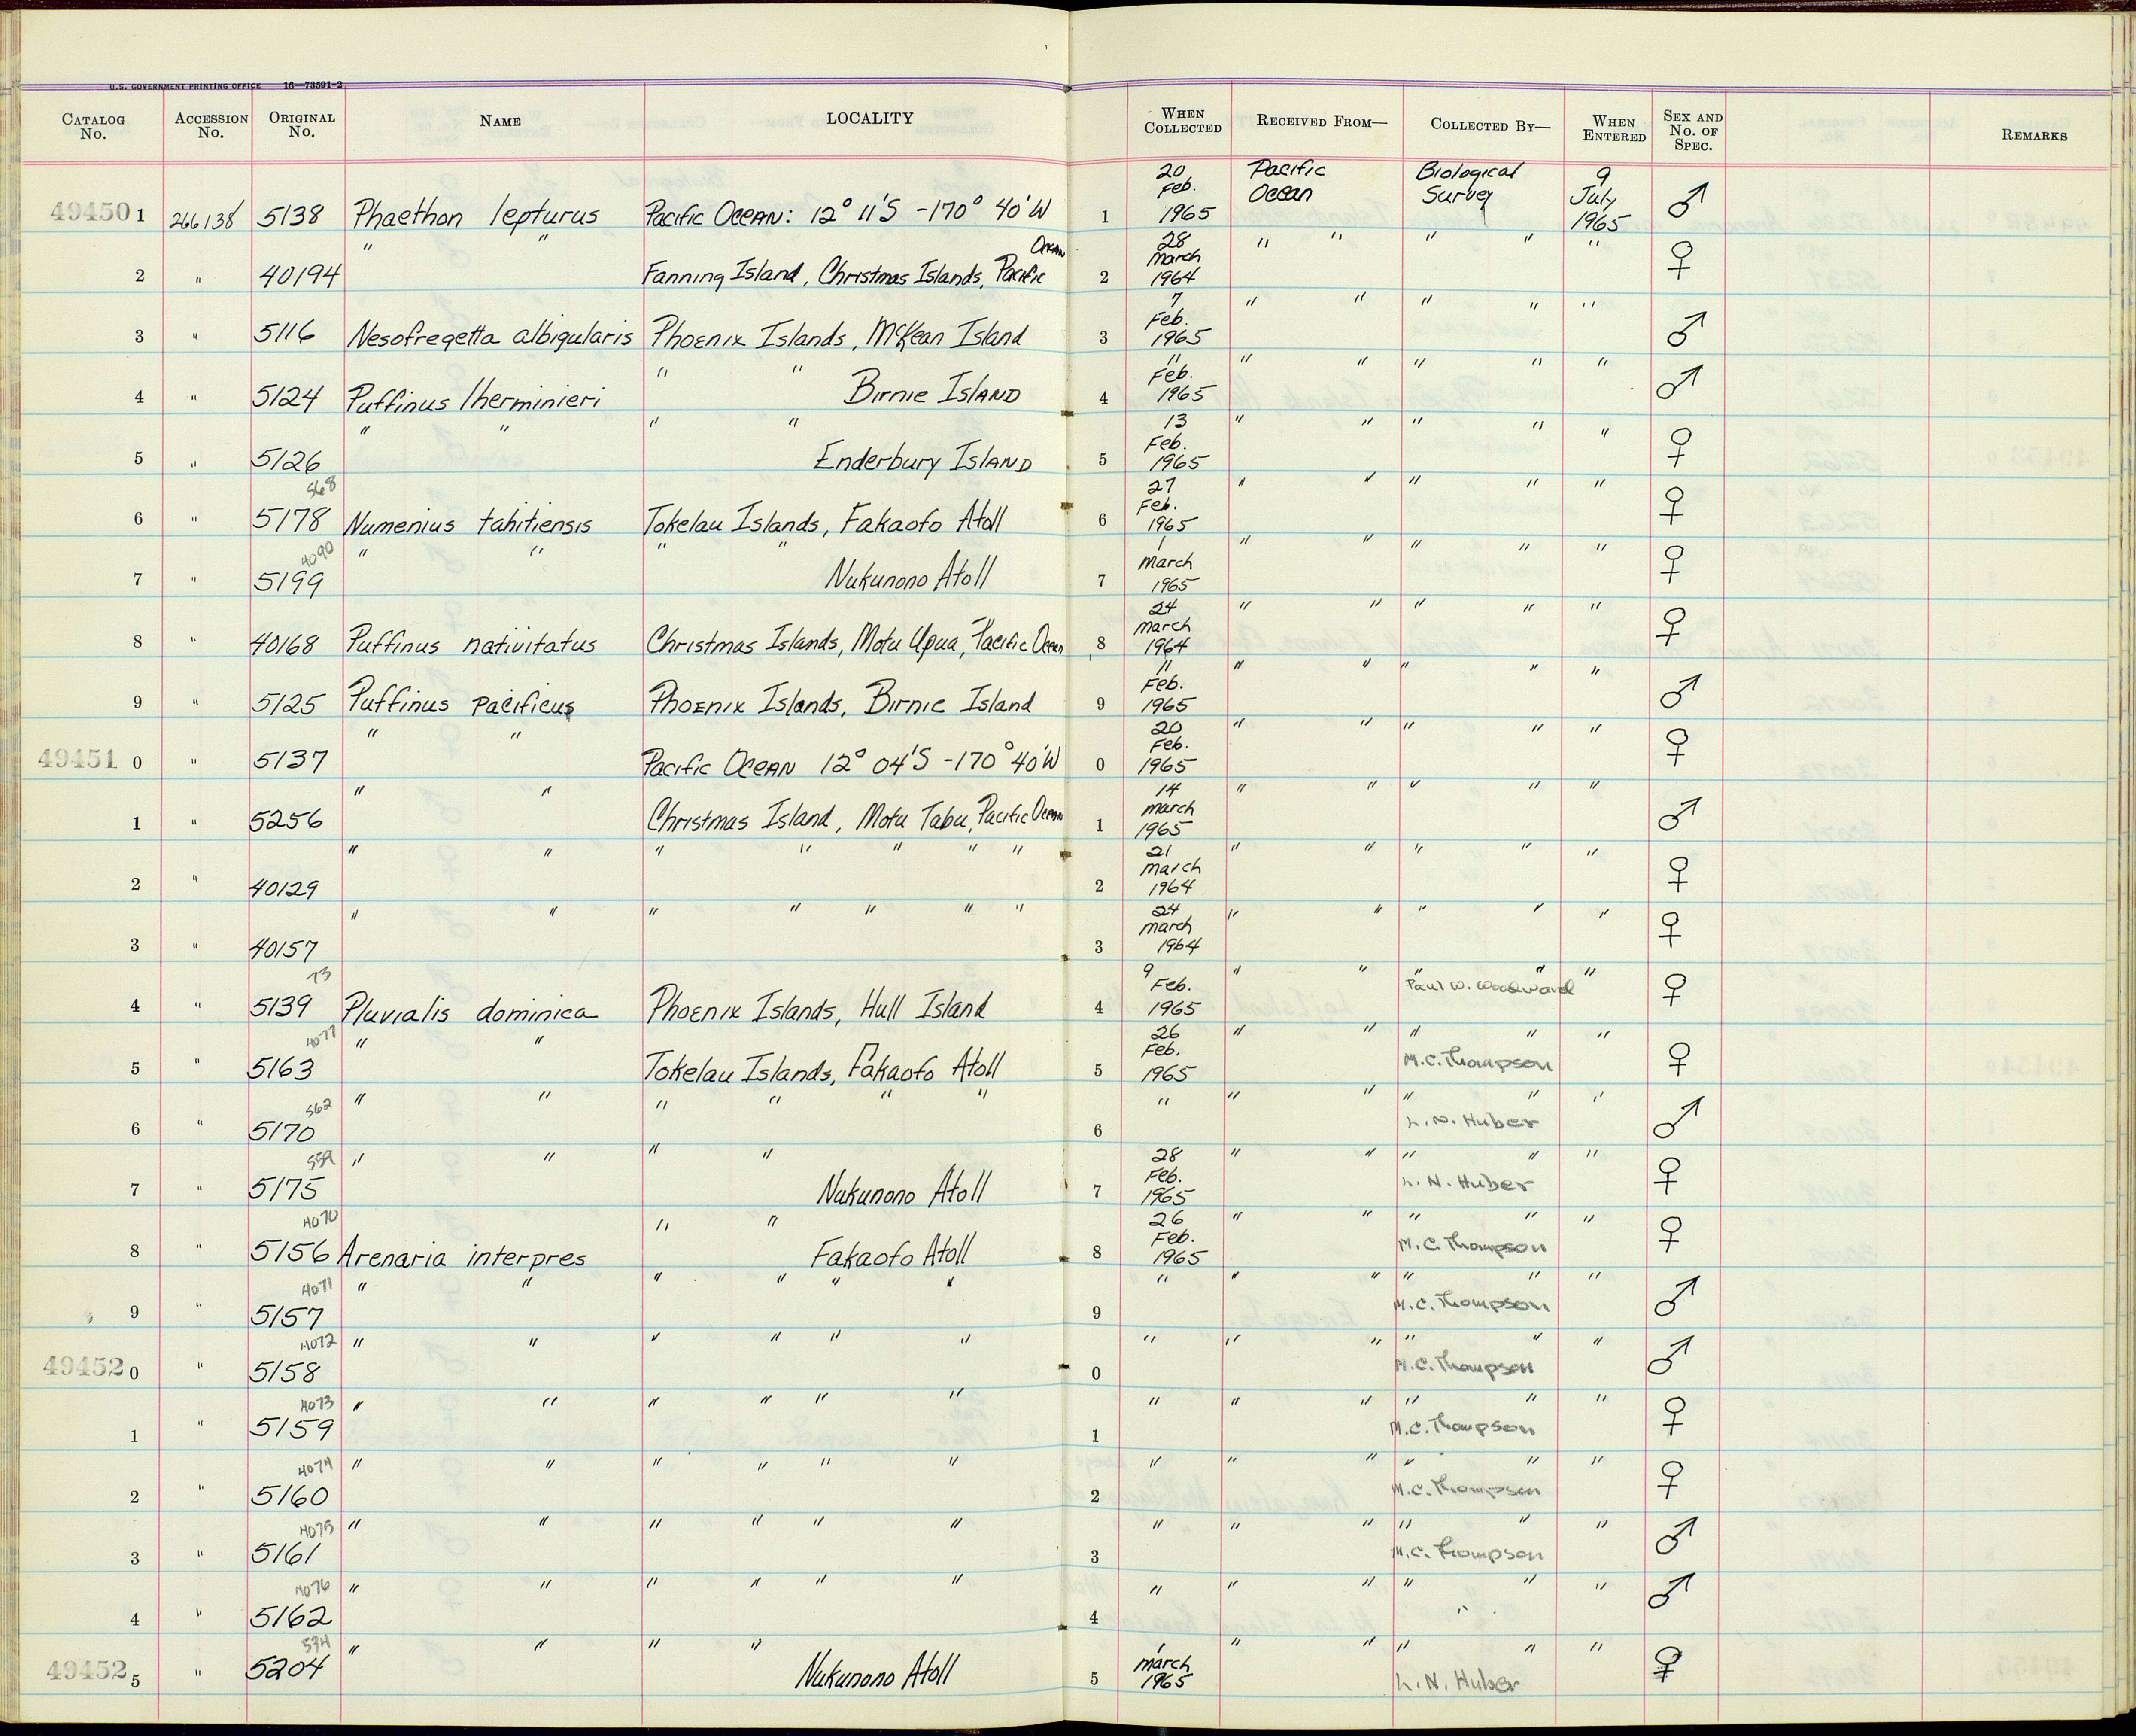 U.S. GOVERNMENT PRINTING OFFICE 16—73591-2
CATALOG No. ACCESSION No. ORIGINAL No. NAME LOCALITY WHEN COLLECTED RECEIVED FROM— COLLECTED BY— WHEN ENTERED SEX AND No. OF SPEC. REMARKS
49450 1 266138 5138 Phaethon lepturus Pacific Ocean: 12° 11'S -170° 40'W 1 20 Feb. 1965 Pacific Ocean Biological Survey 9 July 1965 ♂
2 " 40194 " " Fanning Island, Christmas Islands, Pacific Ocean 2 28 March 1964 " " " " " ♀
3 " 5116 Nesofregetta albigularis Phoenix Islands, McKean Island 3 7 Feb. 1965 " " " " " ♂
4 " 5124 Puffinus lherminieri " " Birnie Island 4 11 Feb. 1965 " " " " " ♂
5 " 5126 " " " " Enderbury Island 5 13 Feb. 1965 " " " " " ♀
6 " 568 5178 Numenius tahitiensis Tokelau Islands, Fakaofo Atoll 6 27 Feb. 1965 " " " " " ♀
7 " 4090 5199 " " " " Nukunono Atoll 7 1 March 1965 " " " " " ♀
8 " 40168 Puffinus nativitatus Christmas Islands, Motu Upua, Pacific Ocean 8 24 March 1964 " " " " " ♀
9 " 5125 Puffinus pacificus Phoenix Islands, Birnie Island 9 11 Feb. 1965 " " " " " ♂
49451 0 " 5137 " " Pacific Ocean 12° 04'S -170° 40'W 0 20 Feb. 1965 " " " " " ♀
1 " 5256 " " Christmas Island, Motu Tabu, Pacific Ocean 1 14 March 1965 " " " " " ♂
2 " 40129 " " " " " " " 2 21 March 1964 " " " " " ♀
3 " 40157 " " " " " " " 3 24 March 1964 " " " " " ♀
4 " 73 5139 Pluvialis dominica Phoenix Islands, Hull Island 4 9 Feb. 1965 " " " " Paul W. Woodward " ♀
5 " 4077 5163 " " Tokelau Islands, Fakaofo Atoll 5 26 Feb. 1965 " " " " M.C. Thompson " ♀
6 " 562 5170 " " " " " " 6 " " " " " L.N. Huber " ♂
7 " 559 5175 " " " " Nukunono Atoll 7 28 Feb. 1965 " " " " L.N. Huber " ♀
8 " 4070 5156 Arenaria interpres " " Fakaofo Atoll 8 26 Feb. 1965 " " " " M.C. Thompson " ♀
9 " 4071 5157 " " " " " " 9 " " " " " M.C. Thompson " ♂
49452 0 " 4072 5158 " " " " " " 0 " " " " " M.C. Thompson " ♂
1 " 4073 5159 " " " " " " 1 " " " " " M.C. Thompson " ♀
2 " 4074 5160 " " " " " " 2 " " " " " M.C. Thompson " ♀
3 " 4075 5161 " " " " " " 3 " " " " " M.C. Thompson " ♂
4 " 4076 5162 " " " " " " 4 " " " " " " " ♂
49452 5 " 574 5204 " " " " Nukunono Atoll 5 1 March 1965 " " " " L.N. Huber " ♀